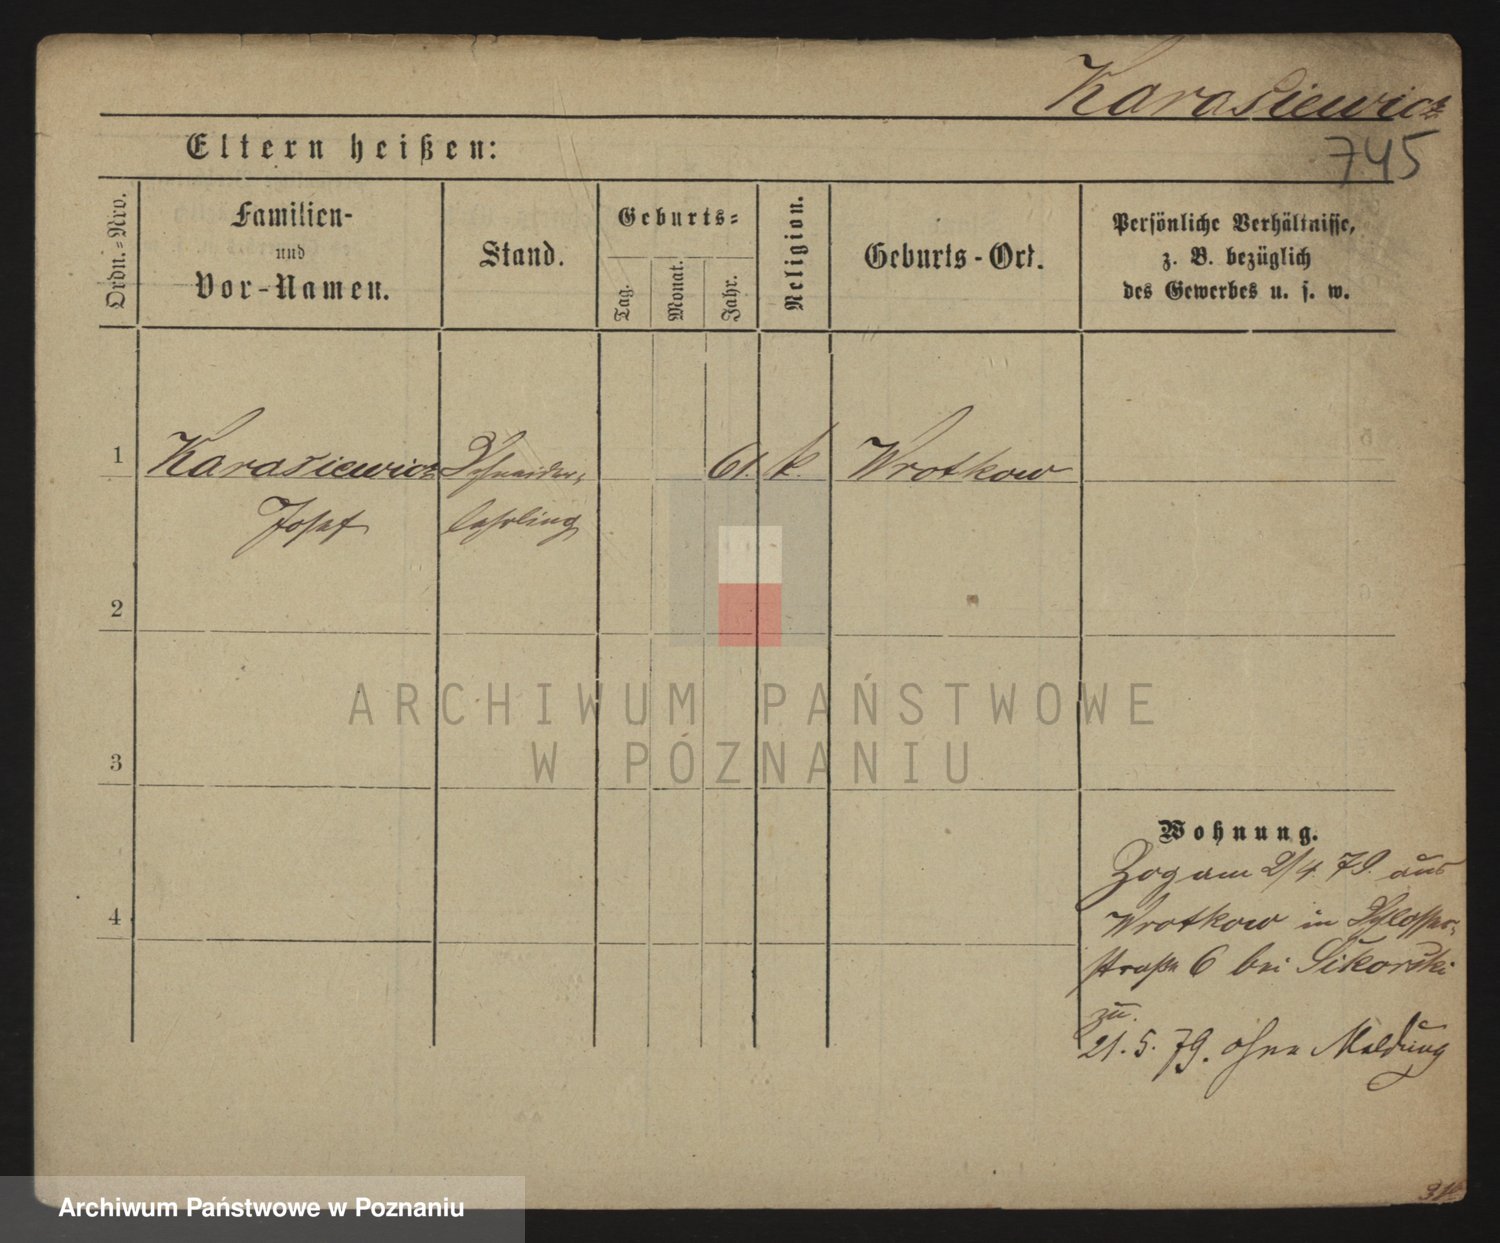 Karasiewicz
745
Eltern heißen:
Ordn.=Nro.
Familien-
und
Vor-Namen.
Stand.
Geburts=
Tag.
Monat.
Jahr.
Religion.
Geburts-Ort.
Persönliche Verhältnisse,
z. B. bezüglich
des Gewerbes u. s. w.
1
Karasiewicz
Josef
Schneider-
lehrling
61.
k.
Wrotkow
2
3
4
ARCHIWUM PAŃSTWOWE
W POZNANIU
Wohnung.
Zog am 2/4. 79. aus
Wrotkow in Schlosser-
straße 6 bei Sikorski
zu.
21. 5. 79. ohne Meldung
Archiwum Państwowe w Poznaniu